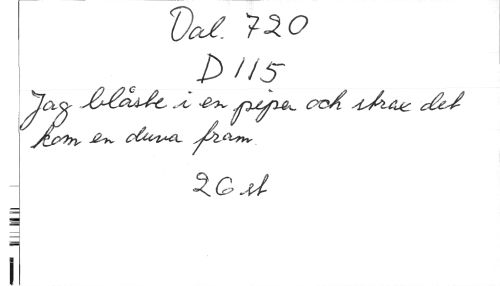 Dal. 720
D 115
Jag blåste i en pipa och strax det
kom en duva fram.
26 st